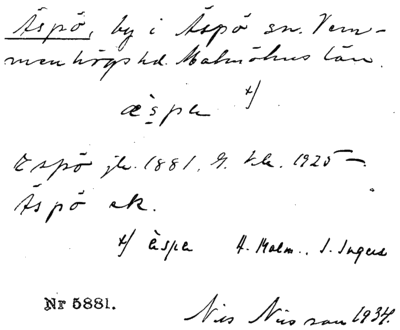 Äspö, by i Äspö sn. Vem-
menhögs hd. Malmöhus län.
æspa x)
Espö jb. 1881, G. kb. 1925–.
Äspö ek.
x) äspa A. Malm., I. Ingers
Nr 5881.
Nils Nilsson 1934.